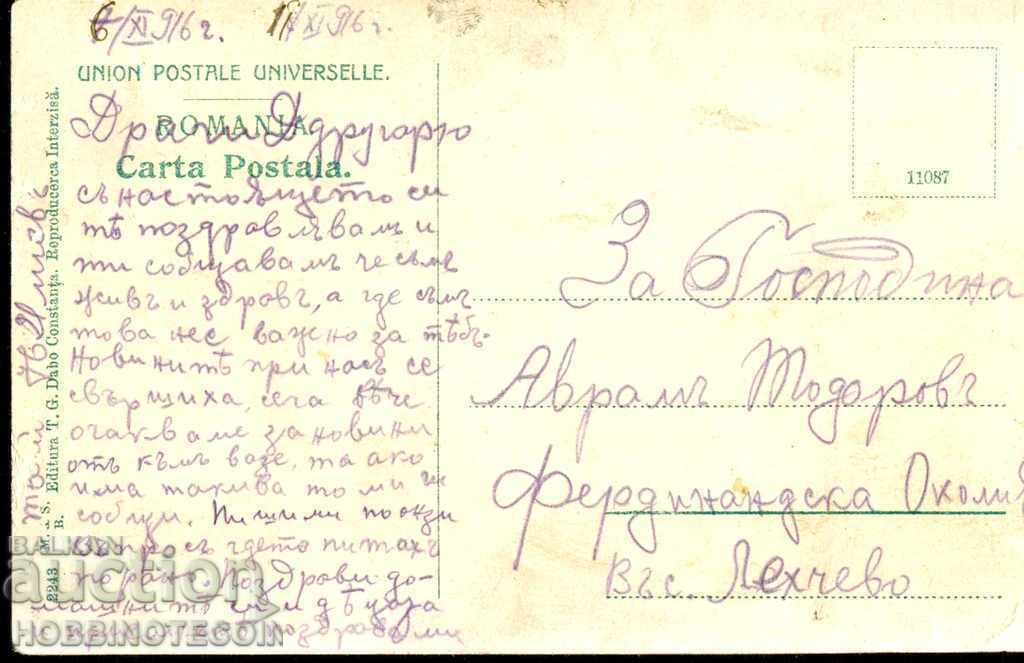 6/XI 916 г. 17/XI 916 г.
UNION POSTALE UNIVERSELLE.
ROMANIA
Carta Postala.
Драги Другарю
съ настоящето си
тѣ поздравлявамъ и
ти собщавамъ че съмъ
живъ и здравъ, а где съмъ
това нее важно за тѣбъ.
Новинитѣ при насъ се
свършиха, сега вѣче
очакваме за новини
отъ къмъ вазе, та ако
има такива то ми ги
собщи. Пиши ми по онзи
въпросъ гдето питахъ
порано. Поздрави до-
машнитѣ си и дѣцата
поздрави ми
2243 M. S. B. Editura T. G. Dabo Constanţa. Reproducerea Interzisă.
11087
За Господина
Аврамъ Тодоровъ
Фердинандска Околия
Въ с. Лехчево
BALKAN
auction
HOBBINOTESOIN